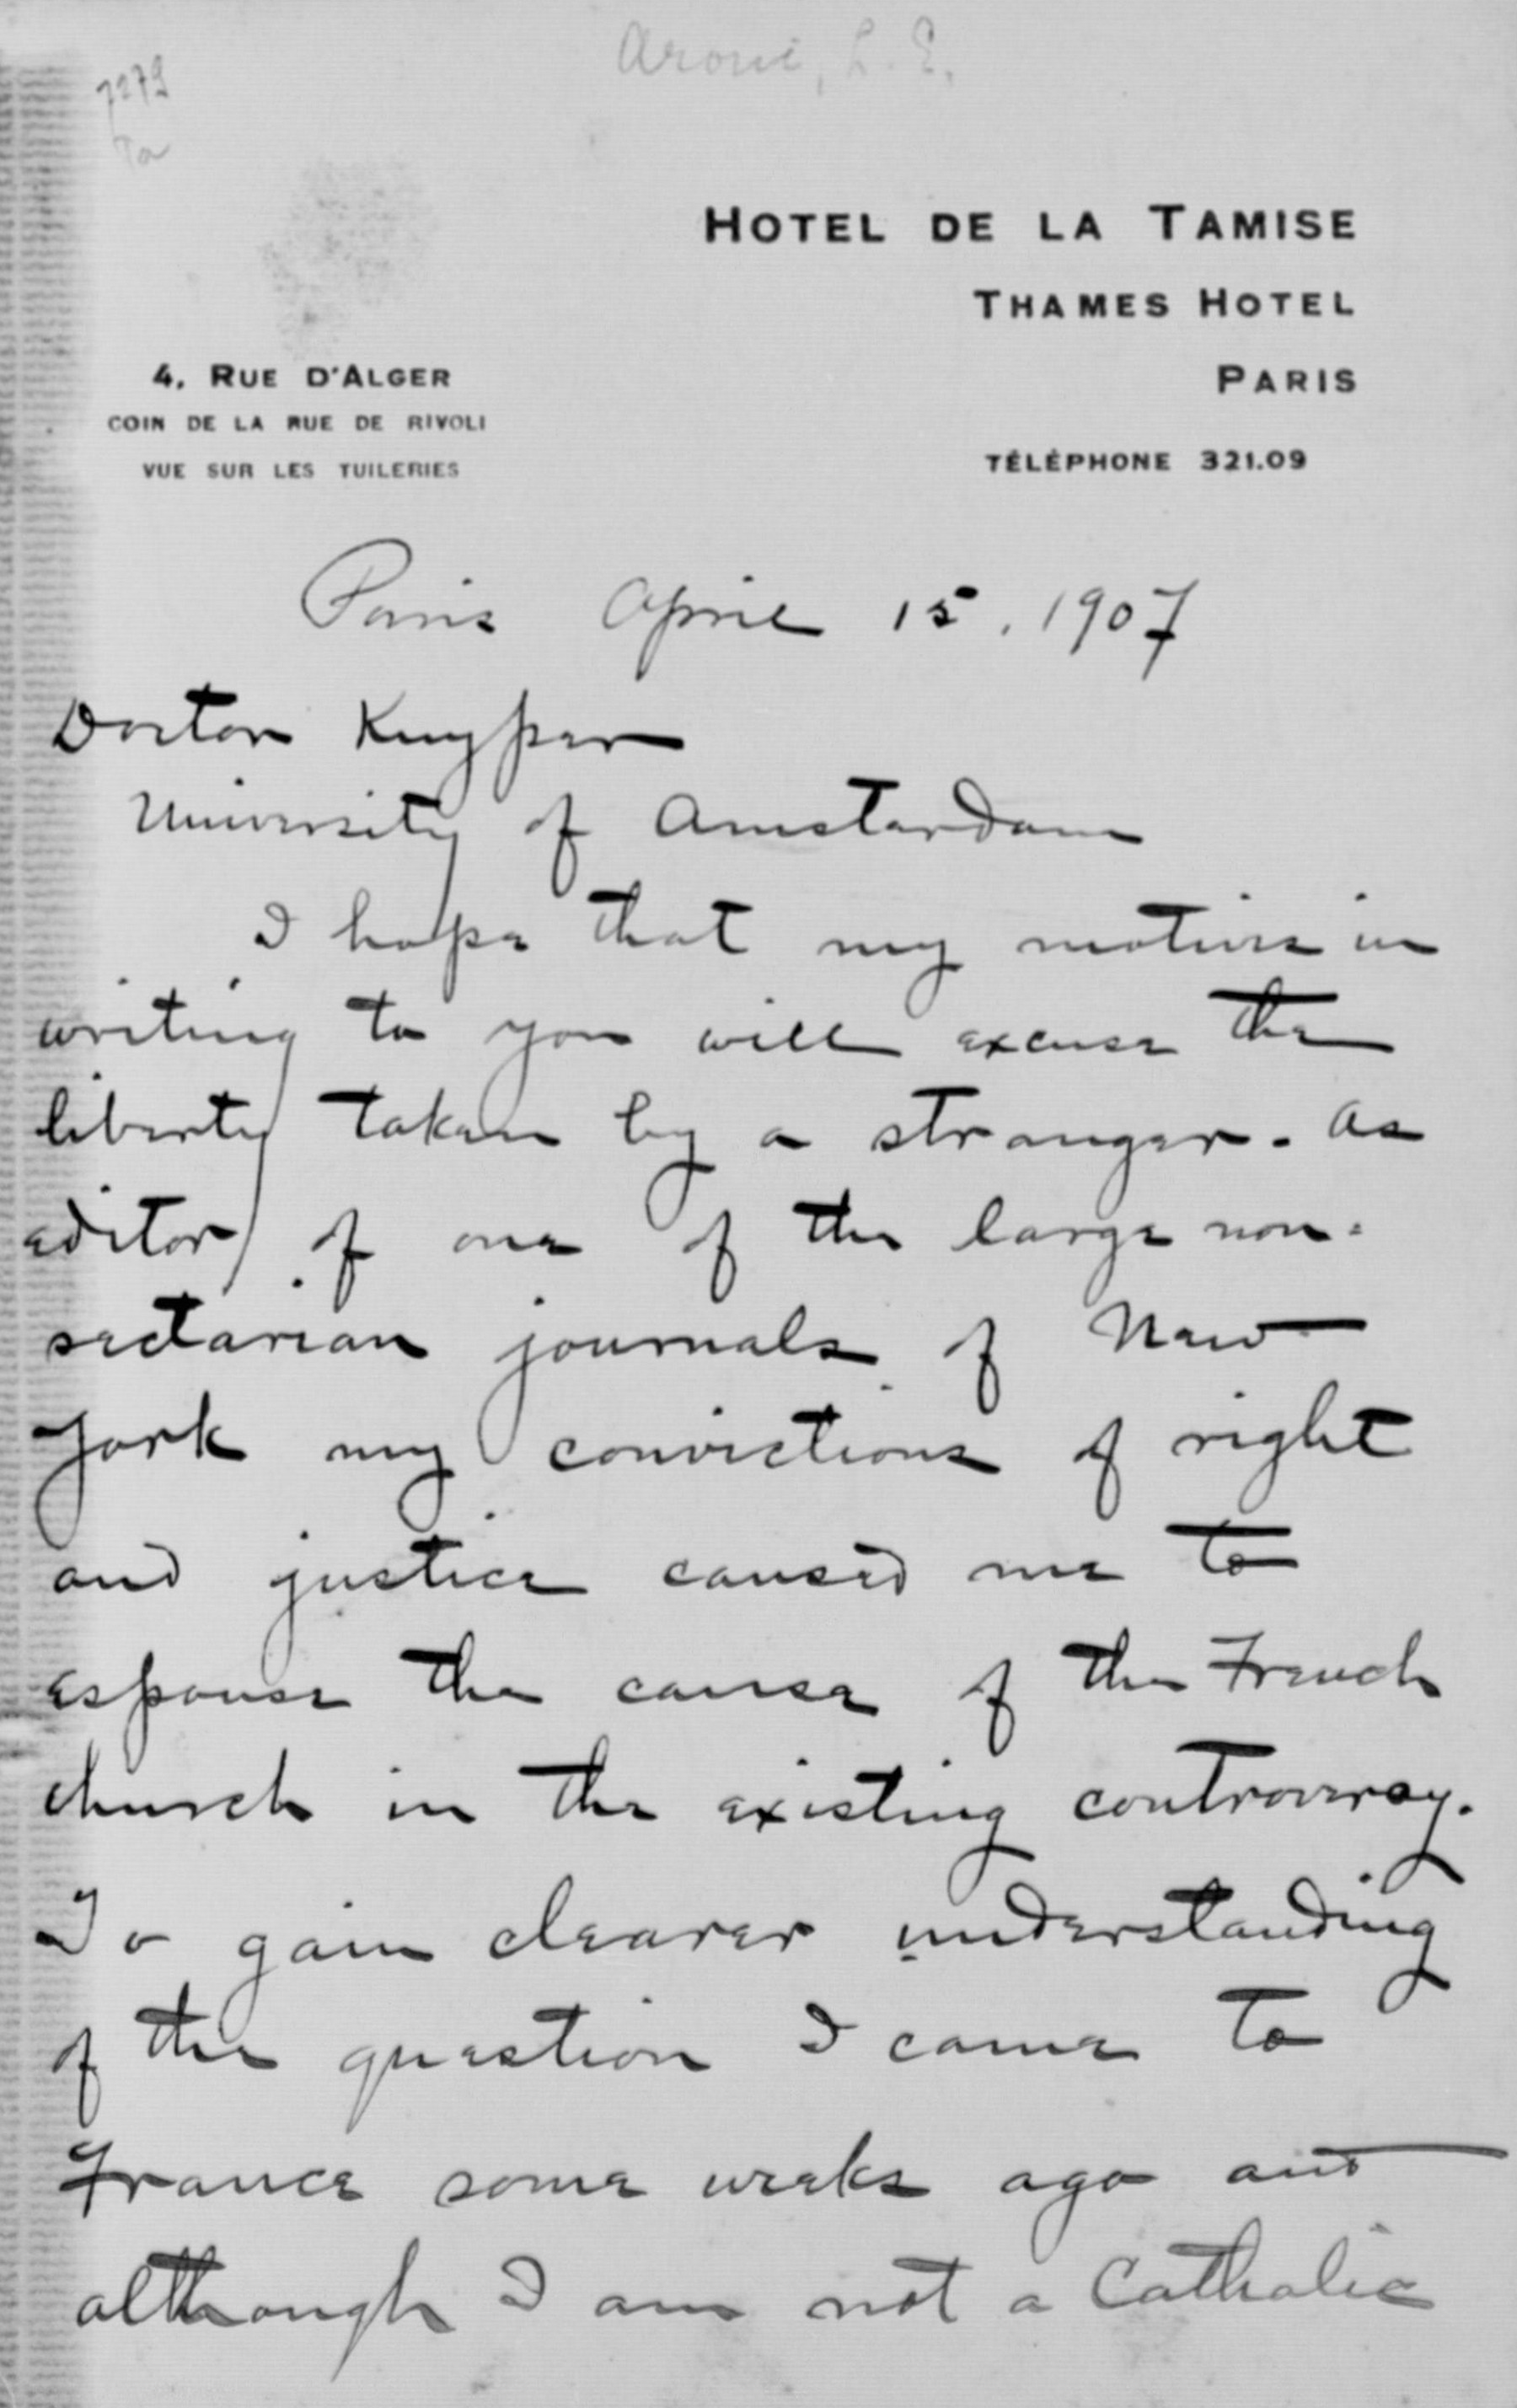 Aroni, L. E.
7279
Ta
HOTEL DE LA TAMISE
THAMES HOTEL
PARIS
TÉLÉPHONE 321.09
4, RUE D'ALGER
COIN DE LA RUE DE RIVOLI
VUE SUR LES TUILERIES
Paris April 15, 1907
Doctor Kuyper
University of Amsterdam
I hope that my motive in
writing to you will excuse the
liberty taken by a stranger. As
editor of one of the large non-
sectarian journals of New
York my convictions of right
and justice caused me to
espouse the cause of the French
church in the existing controversy.
To gain clearer understanding
of the question I came to
France some weeks ago and
although I am not a Catholic